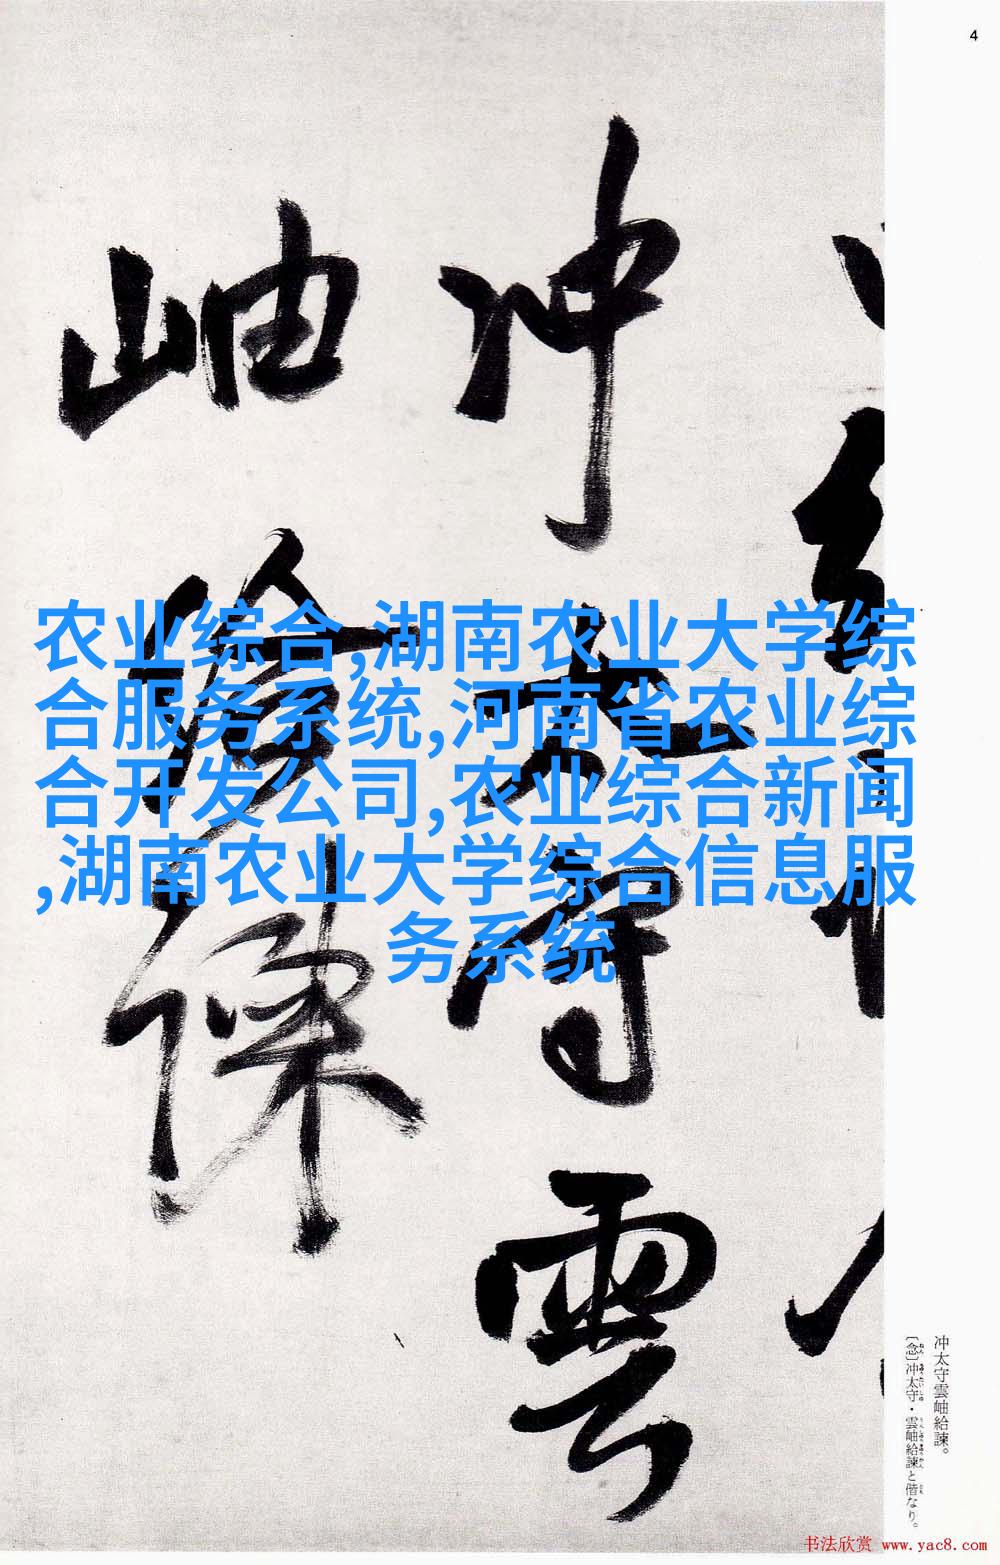 4
冲太守雲
岫給諫
农业综合,湖南农业大学综
合服务系统,河南省农业综
合开发公司,农业综合新闻
,湖南农业大学综合信息服
务系统
冲太守雲岫給諫。
〔念〕冲太守・雲岫給諫と偕なり。
书法欣赏 www.yac8.com